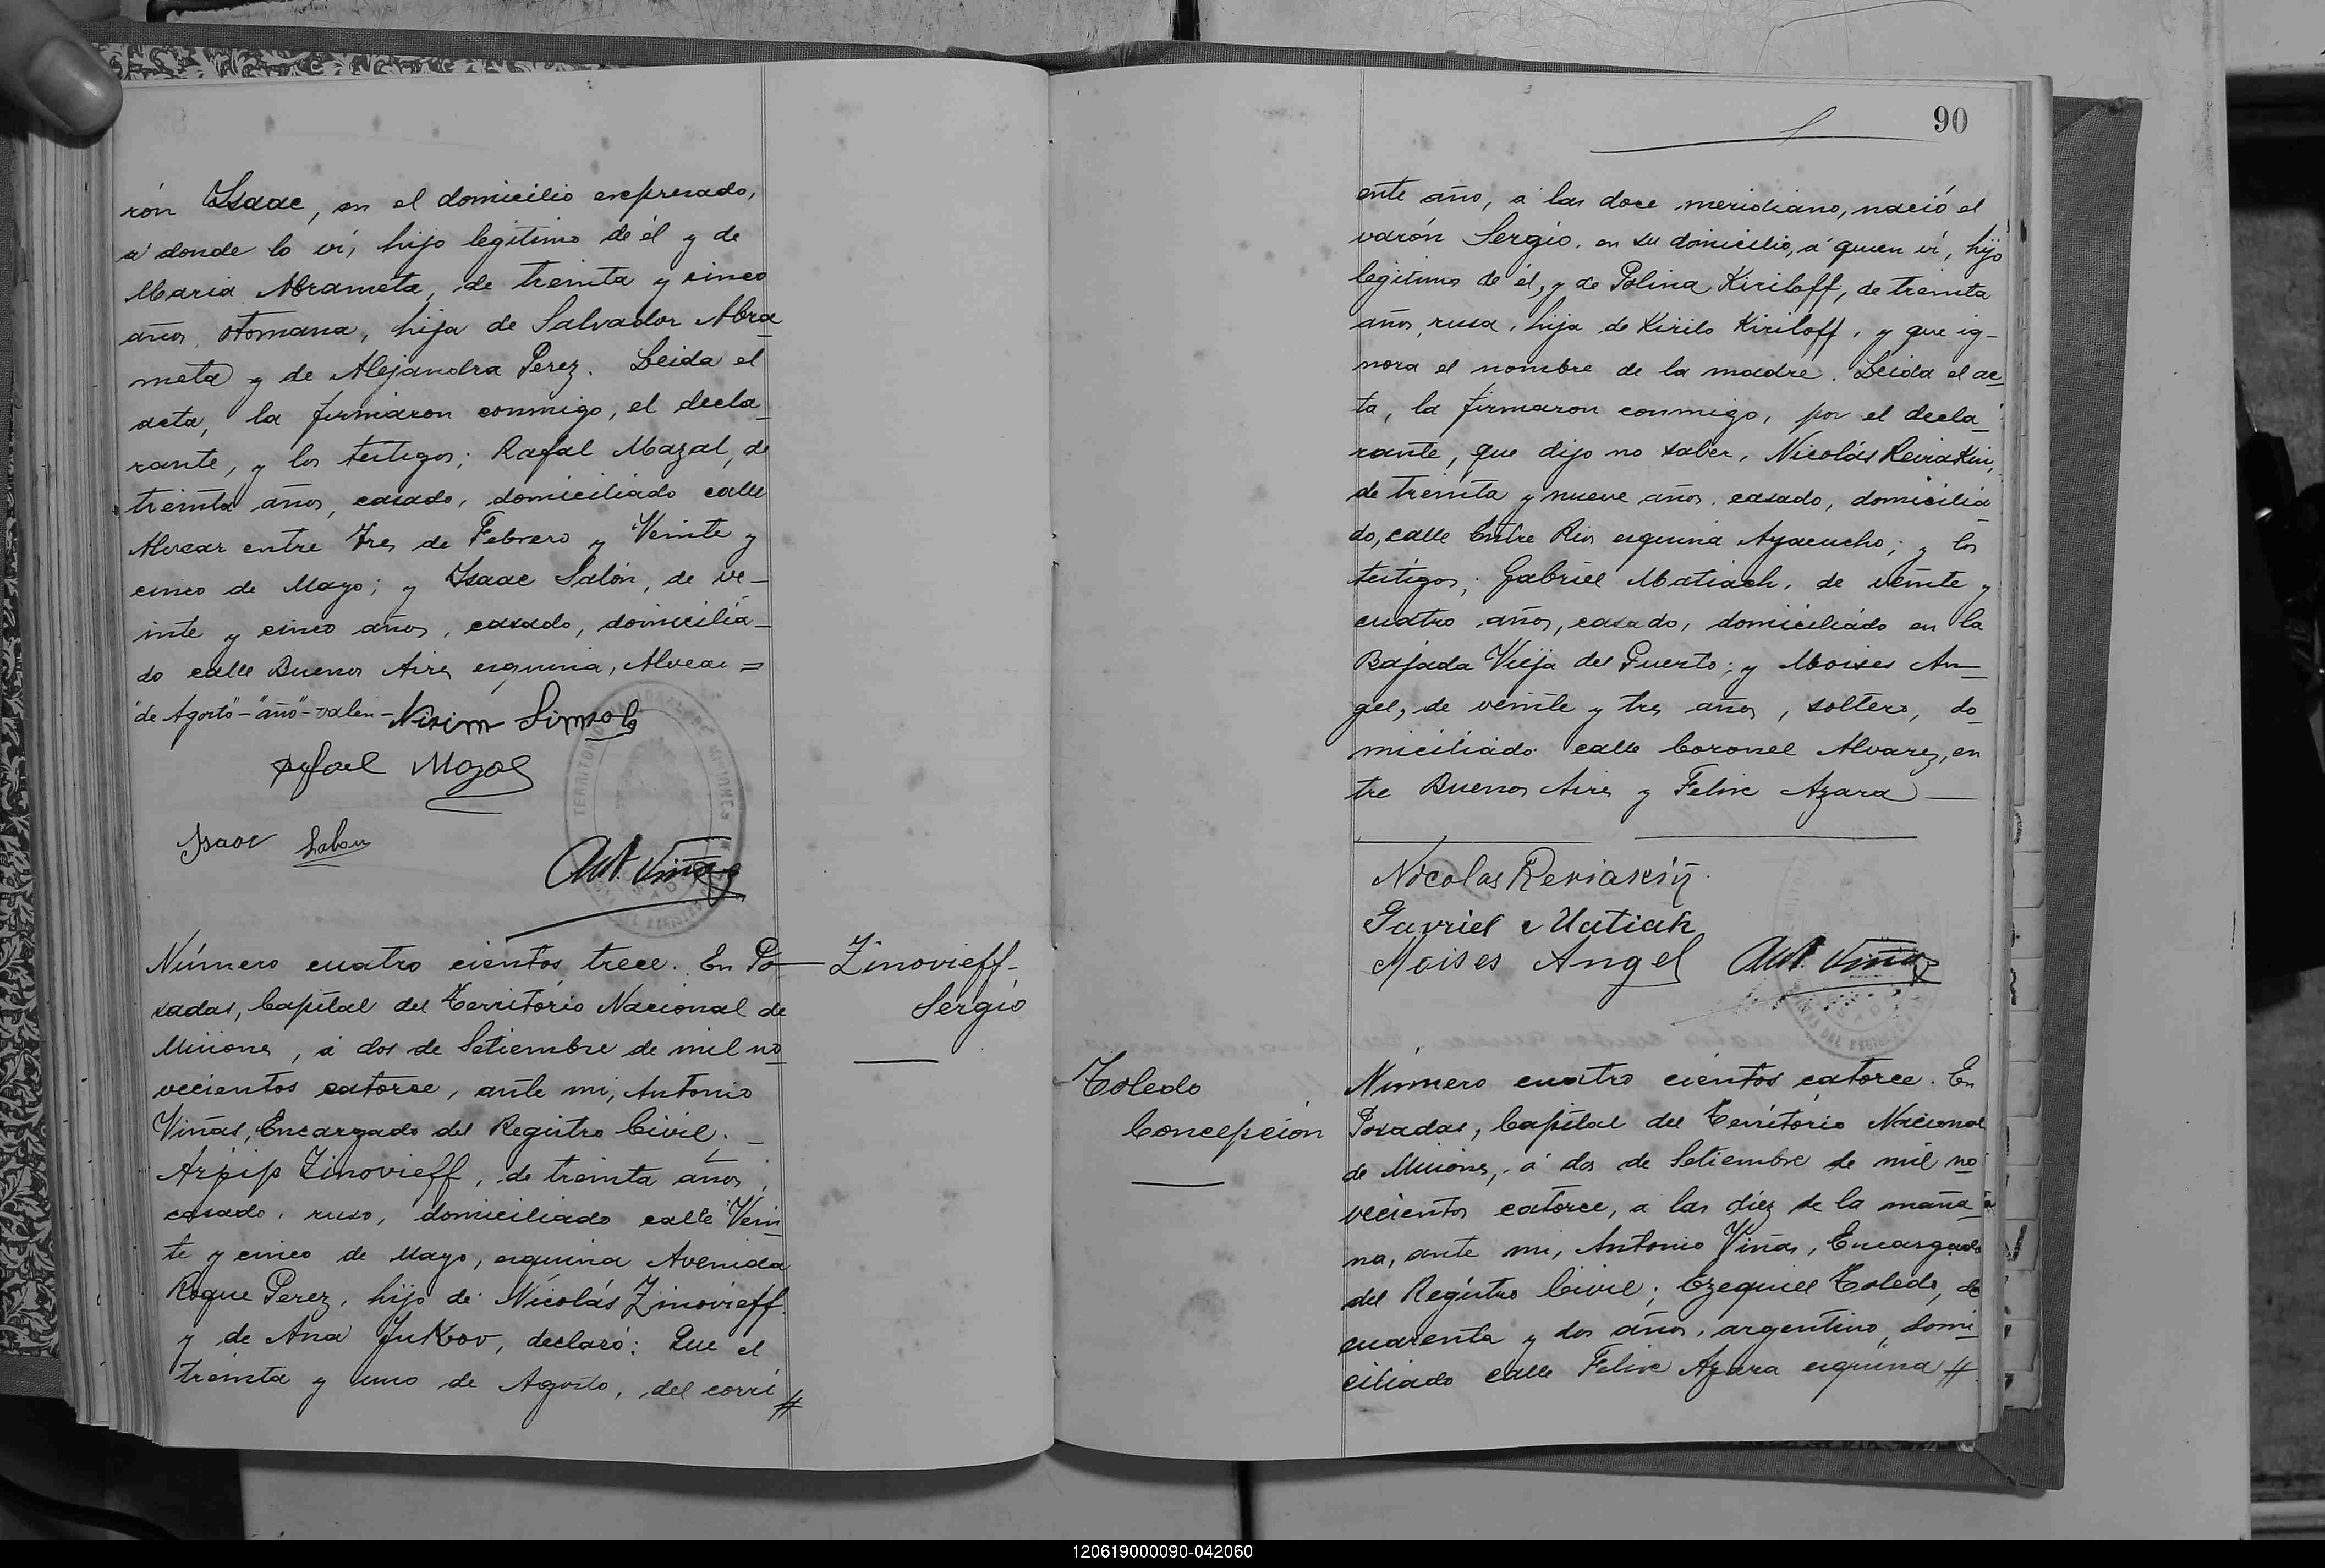 rón Isaac, en el domicilio expresado,
á donde lo ví, hijo legítimo de él y de
Maria Abrameta, de treinta y cinco
años, otomana, hija de Salvador Abra
meta y de Alejandra Perez. Leida el
acta, la firmaron conmigo, el decla_
rante, y los testigos; Rafal Mazal, de
treinta años, casado, domiciliado calle
Alvear entre Tres de Febrero y Veinte y
cinco de Mayo; y Isaac Salón, de ve_
inte y cinco años, casado, domicilia_
do calle Buenos Aires esquina, Alvear =
"de Agosto" - "año" - valen - Nisim Simsolo
Rafael Mazal
Isaac Labon
Ant. Viñas
Número cuatro cientos trece. En Po
sadas, Capital del Territorio Nacional de
Misiones, á dos de Setiembre de mil no
vecientos catorce, ante mi, Antonio
Viñas, Encargado del Registro Civil. _
Arpip Zinovieff, de treinta años,
casado, ruso, domiciliado calle Vein
te y cinco de Mayo, esquina Avenida
Roque Perez, hijo de Nicolás Zinovieff
y de Ana Jukov, declaró: Que el
treinta y uno de Agosto, del corri
Zinovieff-
Sergio
90
ente año, á las doce meridiano, nació el
varón Sergio, en su domicilio, á quien ví, hijo
legítimo de él, y de Polina Kiriloff, de treinta
años, rusa, hija de Kirilo Kiriloff, y que ig-
nora el nombre de la madre. Leida el ac_
ta, la firmaron conmigo, por el decla_
rante, que dijo no saber, Nicolás Reviakin,
de treinta y nueve años, casado, domicilia
do, calle Entre Rios esquina Ayacucho; y los
testigos; Gabriel Matiach, de veinte y
cuatro años, casado, domiciliado en la
Bajada Vieja del Puerto; y Moises An_
gel, de veinte y tres años, soltero, do_
miciliado calle Coronel Alvarez, en
tre Buenos Aires y Felix Azara
Nicolas Reviakin
Gavriel Matiak
Moises Angel Ant. Viñas
Toledo
Concepción
Número cuatro cientos catorce. En
Posadas, Capital del Territorio Nacional
de Misiones, á dos de Setiembre de mil no
vecientos catorce, a las diez de la maña_
na, ante mi, Antonio Viñas, Encargado
del Registro Civil; Ezequiel Toledo, de
cuarenta y dos años, argentino, domi_
ciliado calle Felix Azara esquina #
120619000090-042060